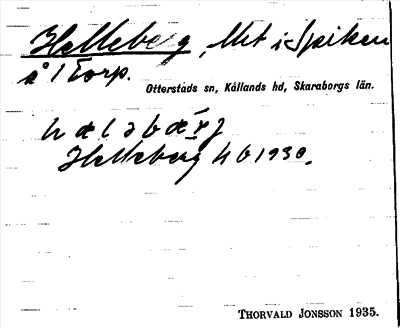 Helleberg, lht i Spiken
å 1 Torp.
Otterstads sn, Kållands hd, Skaraborgs län.
hæləbærj
Helleberg Hb 1930.
THORVALD JONSSON 1935.